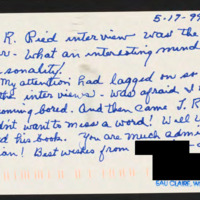 5-17-99
R. Reid interview was the
r - what an interesting mind
sonality!
My attention had lagged on so
the interviews - was afraid I w
ming bored. And then came T. R
dn't want to miss a word! Well I
d his book. You are much admi
ian! Best wishes from
EAU CLAIRE, W